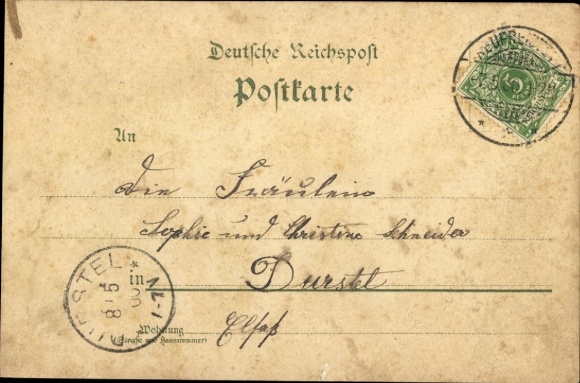 Deutsche Reichspost
Postkarte
5
An
Die Fräulein
Sophie und Christine Schneider
in
Durstel
Wohnung
(Straße und Hausnummer)
Elsaß
DURSTEL
8 5